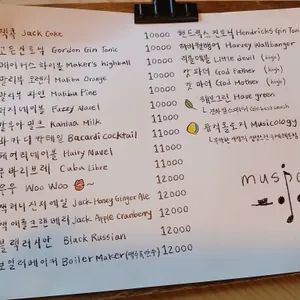 잭콕 Jack Coke 10000
고든 진토닉 Gordon Gin Tonic 10000
메이커스 하이볼 Maker's highball 10000
말리부 오렌지 Malibu Orange 10000
말리부 파인 Malibu Fine 10000
퍼지네이블 Fuzzy Navel 11000
깔루아 밀크 Kahlua Milk 11000
바카디 칵테일 Bacardi cocktail 11000
헤어리 네이블 Hairy Navel 11000
쿠바 리브레 Cuba Libre 11000
우우 Woo Woo 12000
잭 허니 진저에일 Jack Honey Ginger Ale 12000
잭 애플 크랜베리 Jack Apple Cranberry 12000
블랙 러시안 Black Russian 12000
보일러 메이커 Boiler Maker 12000
핸드릭스 진토닉 Hendricks Gin Tonic
하비 월뱅어 Harvey Wallbanger
리틀데블 Little devil (high)
갓 파더 God Father (high)
갓 마더 God Mother (high)
해브그린 Have green
뮤지콜로지 Musicology